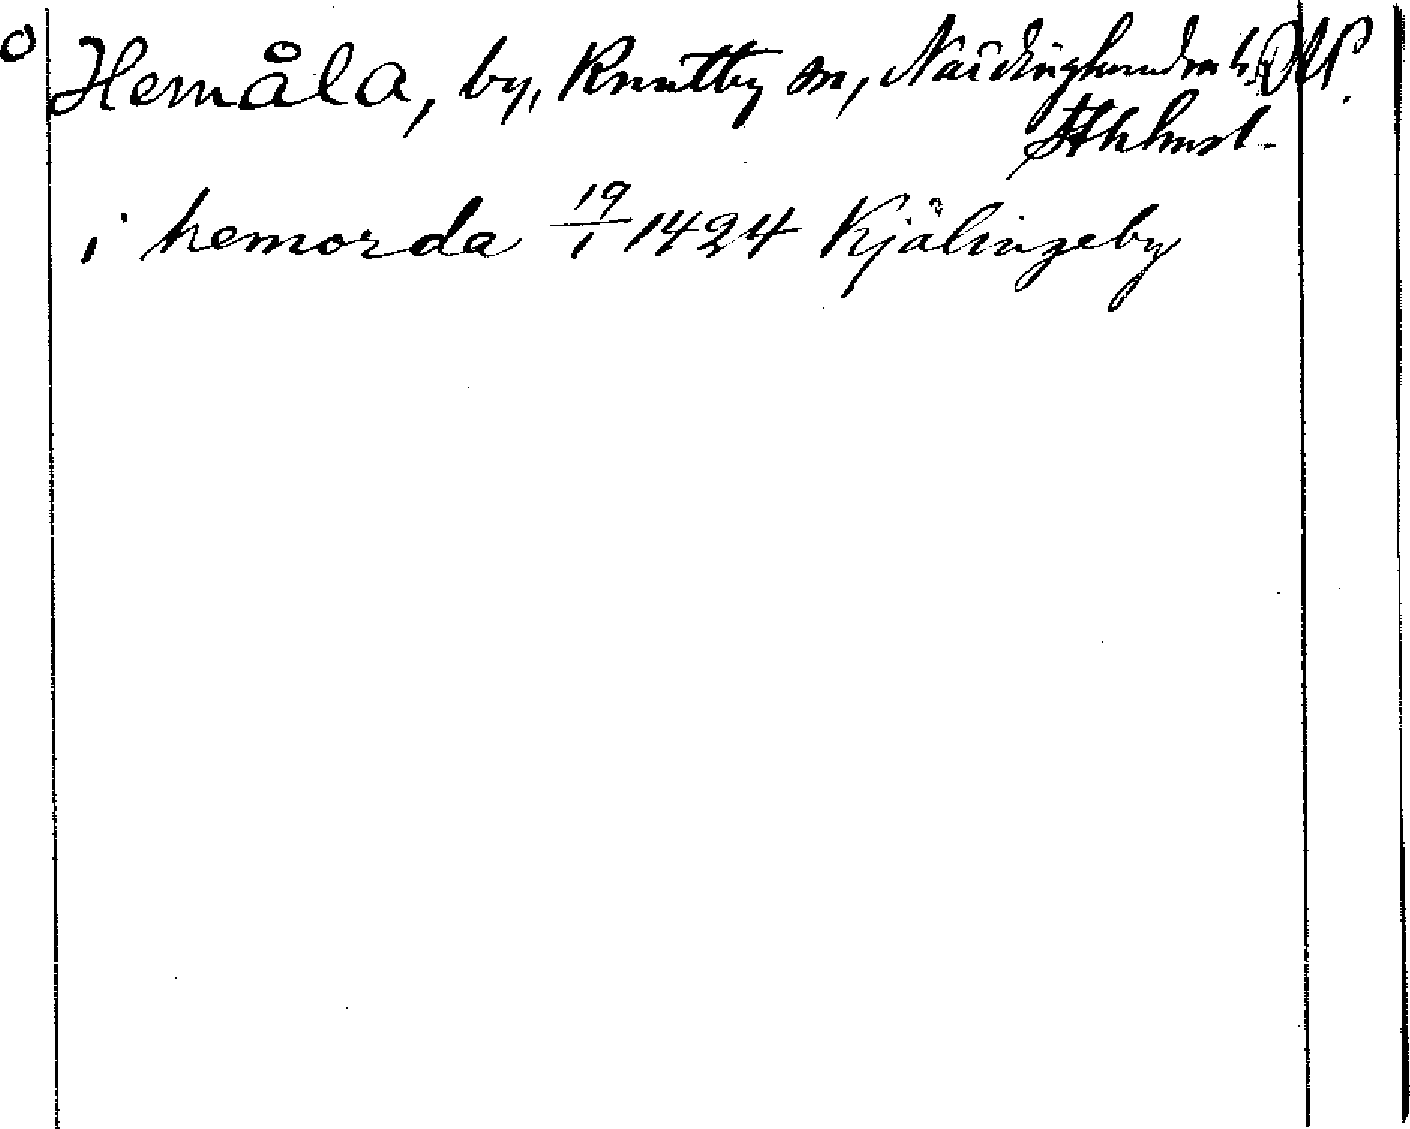 o Hemåla, by, Knutby sn, Närdinghundra h.
Sthlms l.
i hemorda 19/1 1424 Kjälingeby